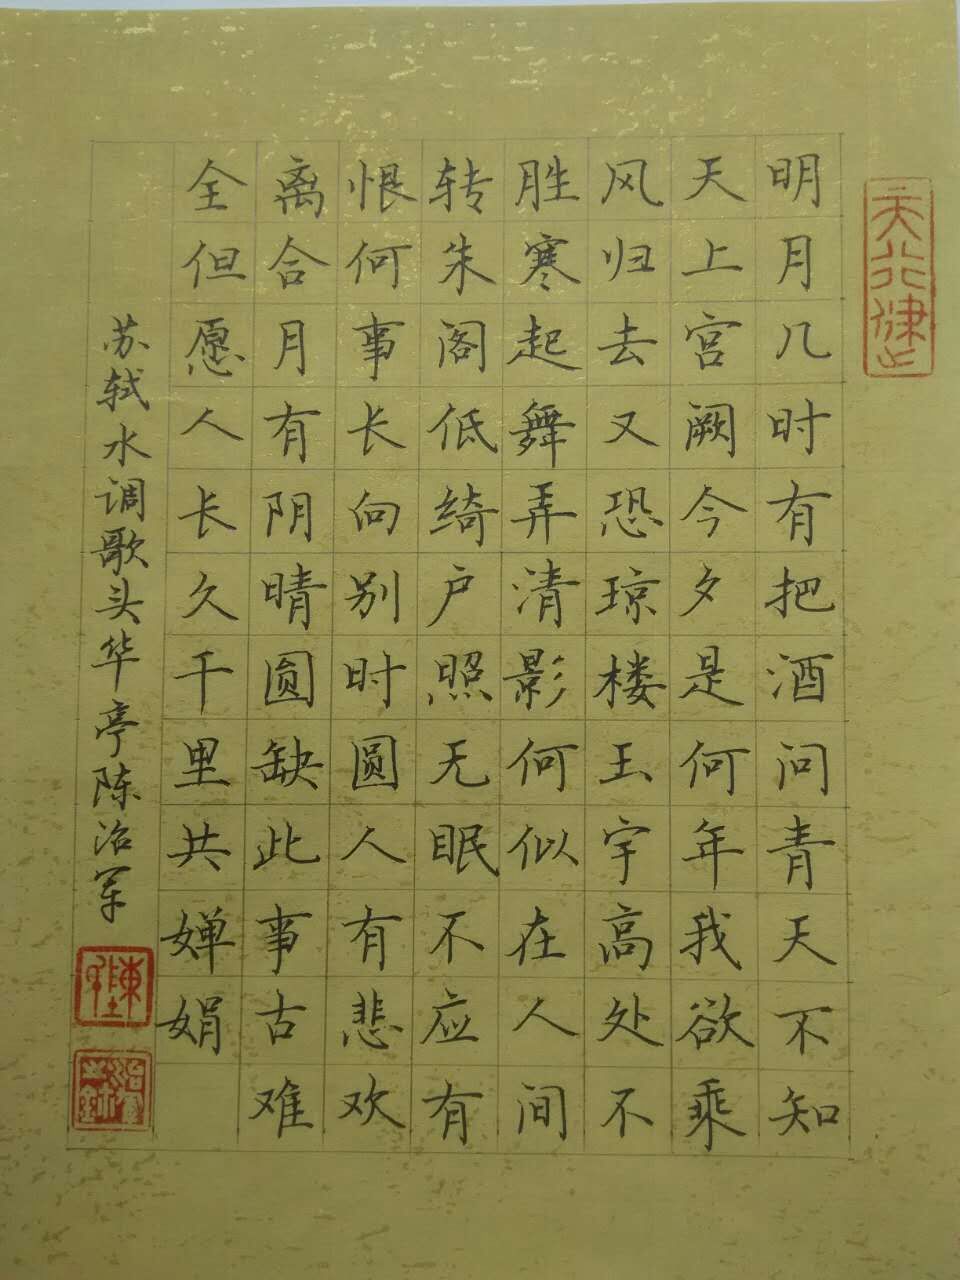 天行健
明月几时有把酒问青天不知
天上宫阙今夕是何年我欲乘
风归去又恐琼楼玉宇高处不
胜寒起舞弄清影何似在人间
转朱阁低绮户照无眠不应有
恨何事长向别时圆人有悲欢
离合月有阴晴圆缺此事古难
全但愿人长久千里共婵娟
苏轼水调歌头华亭陈治军